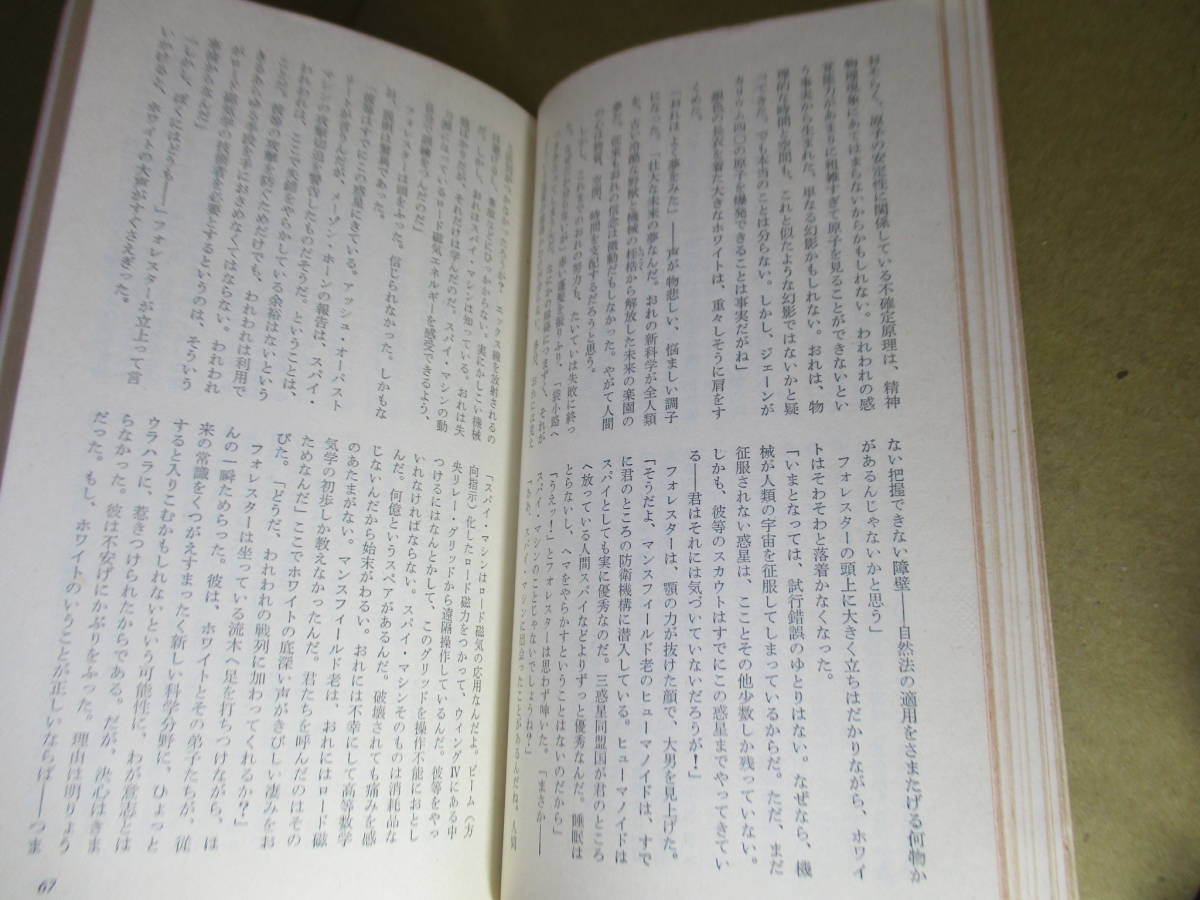 おそらく、原子の安定性に関係している不確定原理は、精神
物理現象にあてはまらないからかもしれない。われわれの感
覚能力があまりに粗雑すぎて原子を見ることができないとい
う事実から生まれた、単なる幻影かもしれない。おれは、物
理的な時間も空間も、これと似たような幻影ではないかと疑
ってきた。でも本当のことは分らない。しかし、ジェーンが
カリウム四〇の原子を爆発できることは事実だがね」
銀色の長衣を着た大きなホワイトは、重々しそうに肩をす
くめた。
「おれはよく夢をみた」――声が物悲しい、悩ましい調子
になった。「壮大な未来の夢なんだ。おれの新科学が全人類
を、古い冷酷な野獣と機械の桎梏から解放した未来の楽園の
夢だ。従来もおれの信念は微動だもしなかった。やがて人間
の心は物質、空間、時間を支配するだろうと思う。
しかし、これまでのおれの努力も、たいていは失敗に終っ
ない把握できない障壁――自然法の適用をさまたげる何物か
があるんじゃないかと思う」
フォレスターの頭上に大きく立ちはだかりながら、ホワイ
トはそわそわと落着かなくなった。
「いまとなっては、試行錯誤のゆとりはない。なぜなら、機
械が人類の宇宙を征服してしまっているからだ。ただ、まだ
征服されない惑星は、こことその他少数しか残っていない。
しかも、彼等のスカウトはすでにこの惑星までやってきてい
る――君はそれには気づいていないだろうが!」
フォレスターは、顎の力が抜けた顔で、大男を見上げた。
「そうだよ、マンスフィールド老のヒューマノイドは、すで
に君のところの防衛機構に潜入している。ヒューマノイドは
スパイとしても実に優秀なのだ。三惑星同盟国が君のところ
へ放っている人間スパイなどよりずっと優秀なんだ。睡眠は
とらないし、ヘマをやらかすということはないのだから」
「うえッ!」とフォレスターは思わず呻いた。「まさか――
スパイ・マシンのことじゃないでしょうね?」
は避けるし、事故などにひっかからない。実にかしこい機械
だ。しかし、おれはスパイ・マシンは知っている。おれは失
敗ばかりだが、それだけは学んだのだ。スパイ・マシンの動
力源になっているロード磁気エネルギーを感受できるよう、
自分の訓練をつんだのだ」
フォレスターは頭をふった。信じられなかった。しかもな
お、頭痛は異質であった。
「彼等はすでにこの惑星にきている。アッシュ・オーバスト
リートが言うんだが、メーソン・ホーンの報告は、スパイ・
マシンの攻撃切迫を警告したものだそうだ。ということは、
われわれは、ここで失錯をやらかしている余裕はないという
ことだ。彼等の攻撃を防ぐためだけでも、われわれは利用で
きるあらゆる手段を手におさめなくてはならない。われわれ
がロード磁気学の技術者を必要とするというのは、そういう
事情からなんだ」
「しかし、ぼくにはどうも――」フォレスターが立上って言
いかけると、ホワイトの大声がすぐさえぎった。
「スパイ・マシンはロード磁気の応用なんだよ。ビーム(方
向指示)化したロード磁力をつかって、ウィングⅣにある中
央リレー・グリッドから遠隔操作しているんだ。彼等をやっ
つけるにはなんとかして、このグリッドを操作不能におとし
いれなければならない。スパイ・マシンそのものは消耗品な
んだ。何億というスペアがあるんだ。破壊されても痛みを感
じないんだから始末がわるい。おれには不幸にして高等数学
のあたまがない。マンスフィールド老は、おれにはロード磁
気学の初歩しか教えなかったんだ。君たちを呼んだのはその
ためなんだ」ここでホワイトの底深い声がきびしい凄みをお
びた。「どうだ、われわれの戦列に加わってくれるか?」
フォレスターは坐っている流木へ足を打ちつけながら、ほ
んの一瞬ためらった。彼は、ホワイトとその弟子たちが、従
来の常識をくつがえすまったく新しい科学分野に、ひょっと
すると入りこむかもしれないという可能性に、わが意志とは
ウラハラに、惹きつけられたからである。だが、決心はきま
らなかった。彼は不安げにかぶりをふった。理由は明りよう
だった。もし、ホワイトのいうことが正しいならば――つま
67